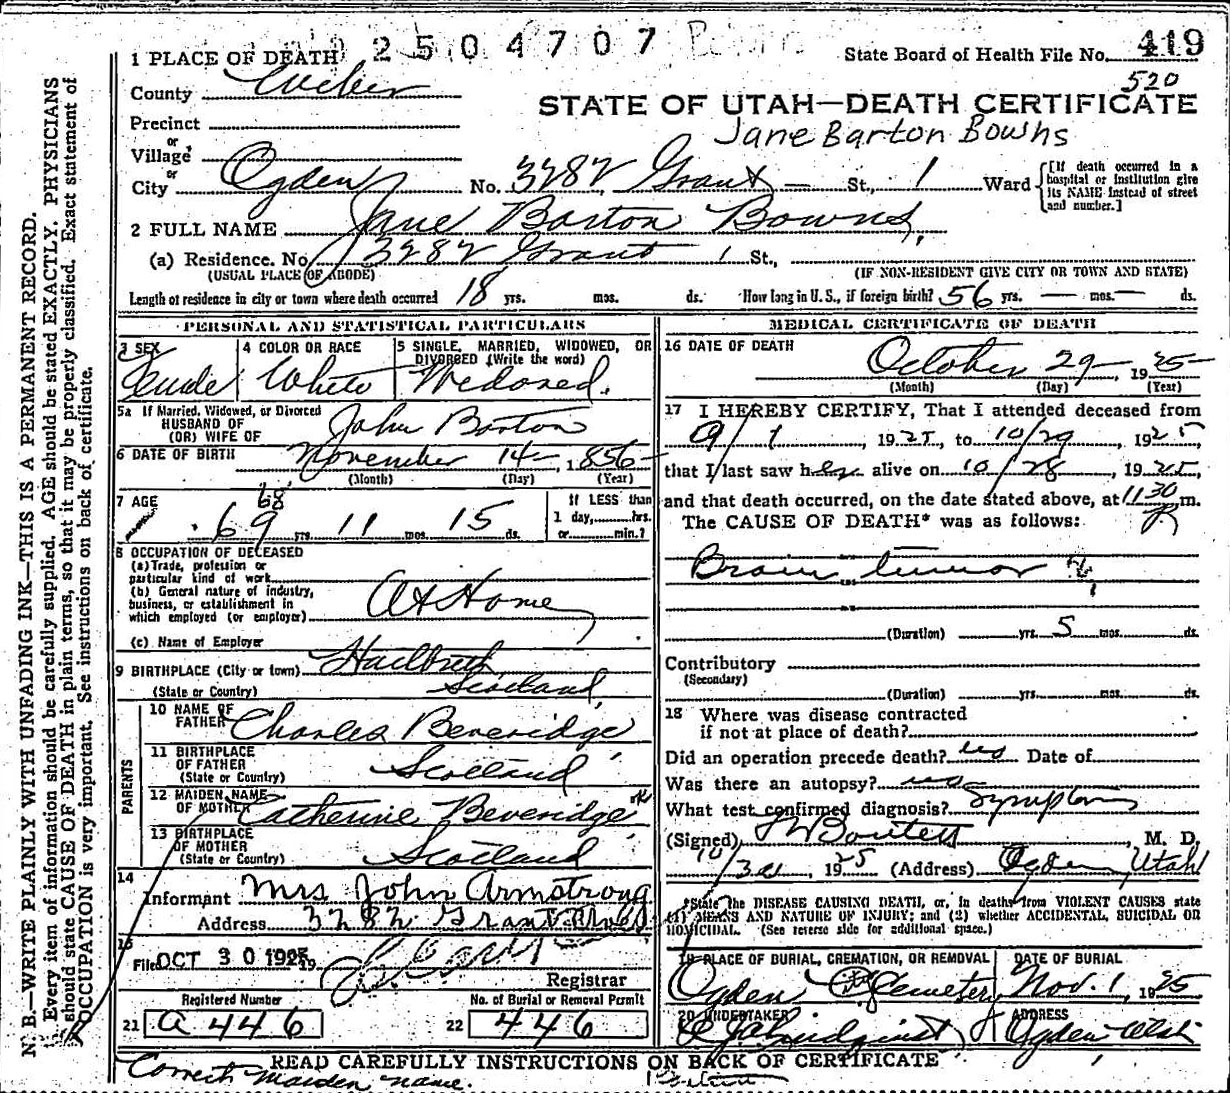 2504707
1 PLACE OF DEATH
State Board of Health File No. 419
520
County Weber
STATE OF UTAH—DEATH CERTIFICATE
Precinct
Jane Barton Bowns
or
Village
or
City Ogden No. 3282 Grant St., 1 Ward
[If death occurred in a hospital or institution give its NAME instead of street and number.]
2 FULL NAME Jane Barton Bowns
(a) Residence. No. 3282 Grant St.,
(USUAL PLACE OF ABODE) (IF NON-RESIDENT GIVE CITY OR TOWN AND STATE)
Length of residence in city or town where death occurred 18 yrs. mos. ds. How long in U.S., if foreign birth? 56 yrs. — mos. — ds.
PERSONAL AND STATISTICAL PARTICULARS
3 SEX
4 COLOR OR RACE White
5 SINGLE, MARRIED, WIDOWED, OR DIVORCED (Write the word) Widowed.
5a If Married, Widowed, or Divorced
HUSBAND OF
(OR) WIFE OF John Barton
6 DATE OF BIRTH November 14 — 1856
(Month) (Day) (Year)
7 AGE 68
69 yrs. 11 mos. 15 ds.
If LESS than
1 day, hrs.
or min.?
8 OCCUPATION OF DECEASED
(a) Trade, profession or
particular kind of work
(b) General nature of industry,
business, or establishment in
which employed (or employer) At Home
(c) Name of Employer
9 BIRTHPLACE (City or town)
(State or Country) Scotland
PARENTS
10 NAME OF
FATHER Charles Beveridge
11 BIRTHPLACE
OF FATHER
(State or Country) Scotland
12 MAIDEN NAME
OF MOTHER Catherine Beveridge ok
13 BIRTHPLACE
OF MOTHER
(State or Country) Scotland
14
Informant Mrs John Armstrong
Address 3282 Grant Ave
15
Filed OCT 30 1925
Registrar
Registered Number
21 a 446
No. of Burial or Removal Permit
22 446
MEDICAL CERTIFICATE OF DEATH
16 DATE OF DEATH
October 29 — 1925
(Month) (Day) (Year)
17 I HEREBY CERTIFY, That I attended deceased from
9/1, 1925, to 10/29, 1925
that I last saw her alive on 10/28, 1925,
and that death occurred, on the date stated above, at 1130 P m.
The CAUSE OF DEATH* was as follows:
Brain tumor
(Duration) yrs. 5 mos. ds.
Contributory
(Secondary)
(Duration) yrs. mos. ds.
18 Where was disease contracted
if not at place of death?
Did an operation precede death? no Date of
Was there an autopsy? no
What test confirmed diagnosis? Symptoms
(Signed) M. D.
10/30, 1925 (Address) Ogden, Utah
*State the DISEASE CAUSING DEATH, or, in deaths from VIOLENT CAUSES state
(1) MEANS AND NATURE OF INJURY; and (2) whether ACCIDENTAL, SUICIDAL OR
HOMICIDAL. (See reverse side for additional space.)
19 PLACE OF BURIAL, CREMATION, OR REMOVAL
Ogden City Cemetery
DATE OF BURIAL
Nov. 1, 1925
20 UNDERTAKER
Lindquist
ADDRESS
Ogden Utah
READ CAREFULLY INSTRUCTIONS ON BACK OF CERTIFICATE
Correct maiden name.
N. B.—WRITE PLAINLY WITH UNFADING INK—THIS IS A PERMANENT RECORD.
Every item of information should be carefully supplied. AGE should be stated EXACTLY. PHYSICIANS
should state CAUSE OF DEATH in plain terms, so that it may be properly classified. Exact statement of
OCCUPATION is very important. See instructions on back of certificate.